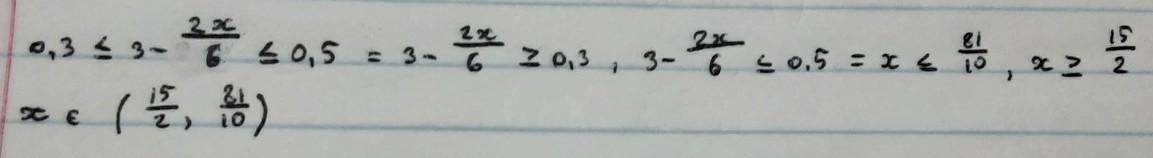 0,3 ≤ 3 - \frac{2x}{6} ≤ 0,5 = 3 - \frac{2x}{6} ≥ 0,3 , 3 - \frac{2x}{6} ≤ 0,5 = x ≤ \frac{81}{10} , x ≥ \frac{15}{2}
x ∈ ( \frac{15}{2} , \frac{81}{10} )